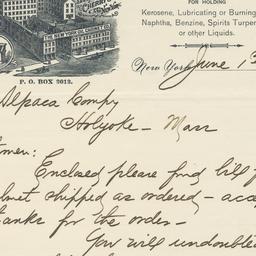 FOR HOLDING
Kerosene, Lubricating or Burning
Naphtha, Benzine, Spirits Turpe
or other Liquids.
THE NEW YORK OIL CABINET CO.
P. O. BOX 2013.
New York, June 1
Alpaca Compy
Holyoke - Mass
tmen:
Enclosed please find bill f
inet shipped as ordered - acc
thanks for the order -
You will undoubte